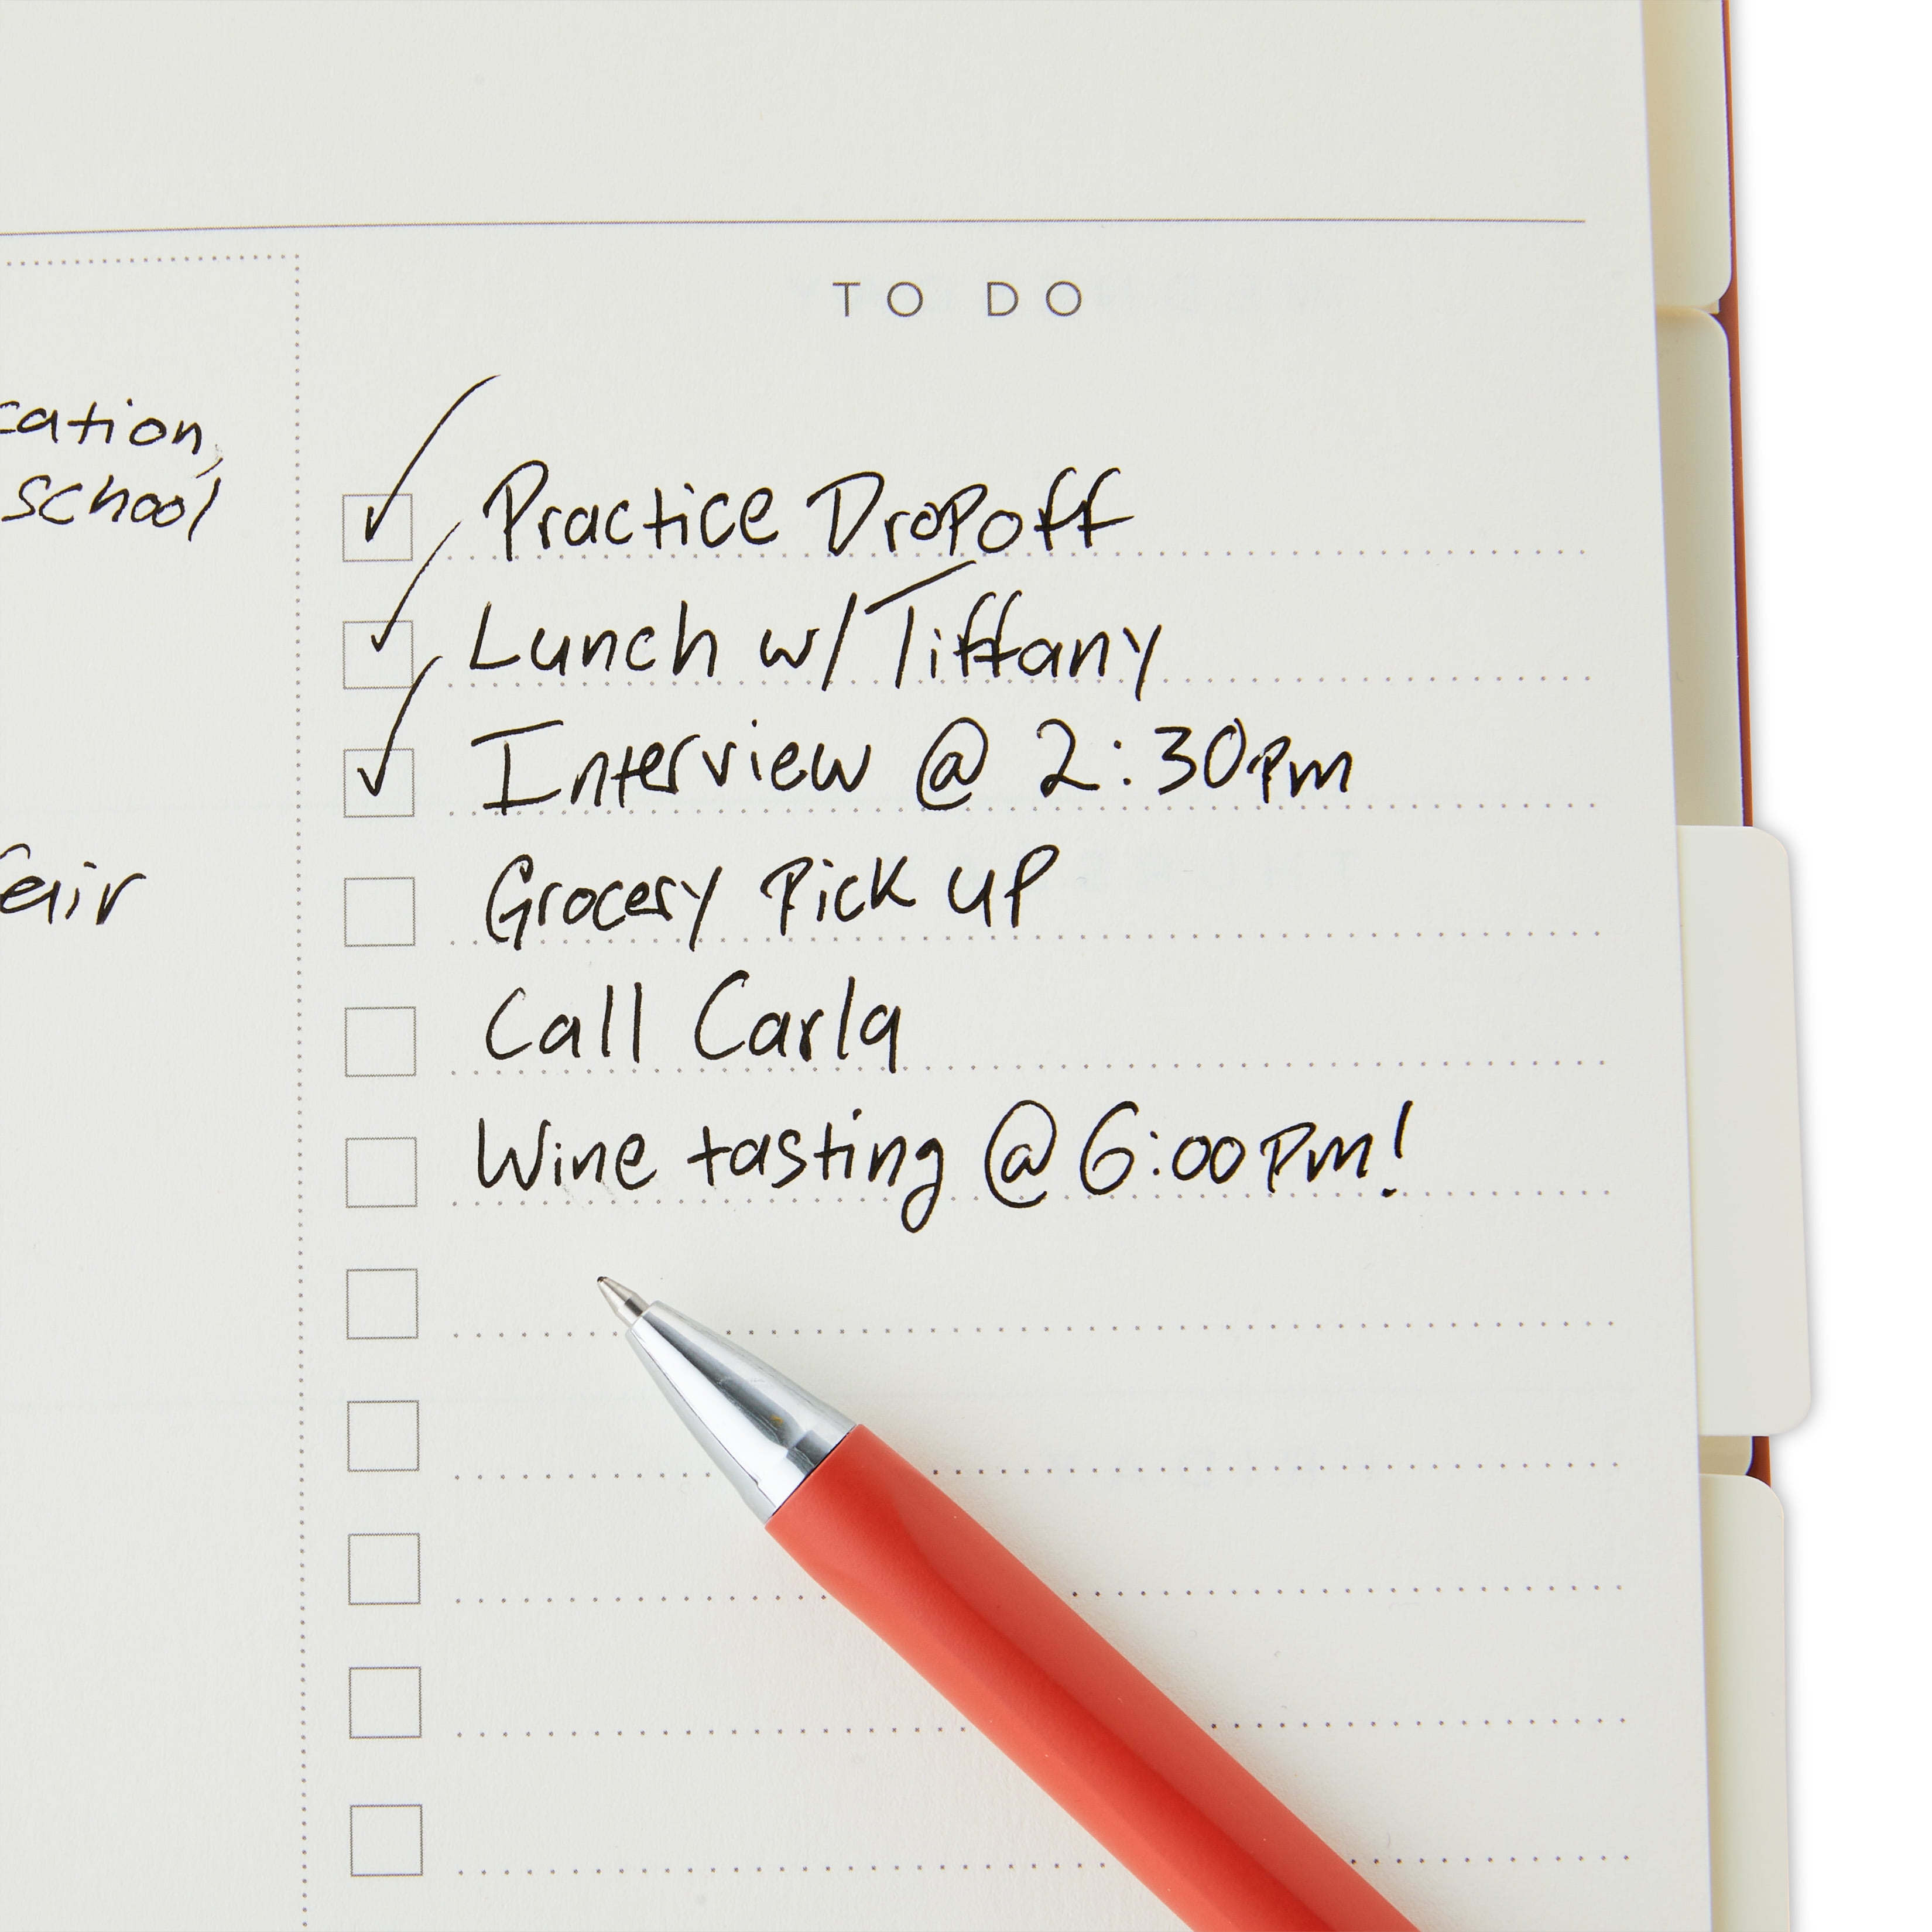 TO DO
cation,
school
fair
Practice Dropoff
Lunch w/ Tiffany
Interview @ 2:30pm
Grocery Pick up
Call Carla
Wine tasting @ 6:00pm!